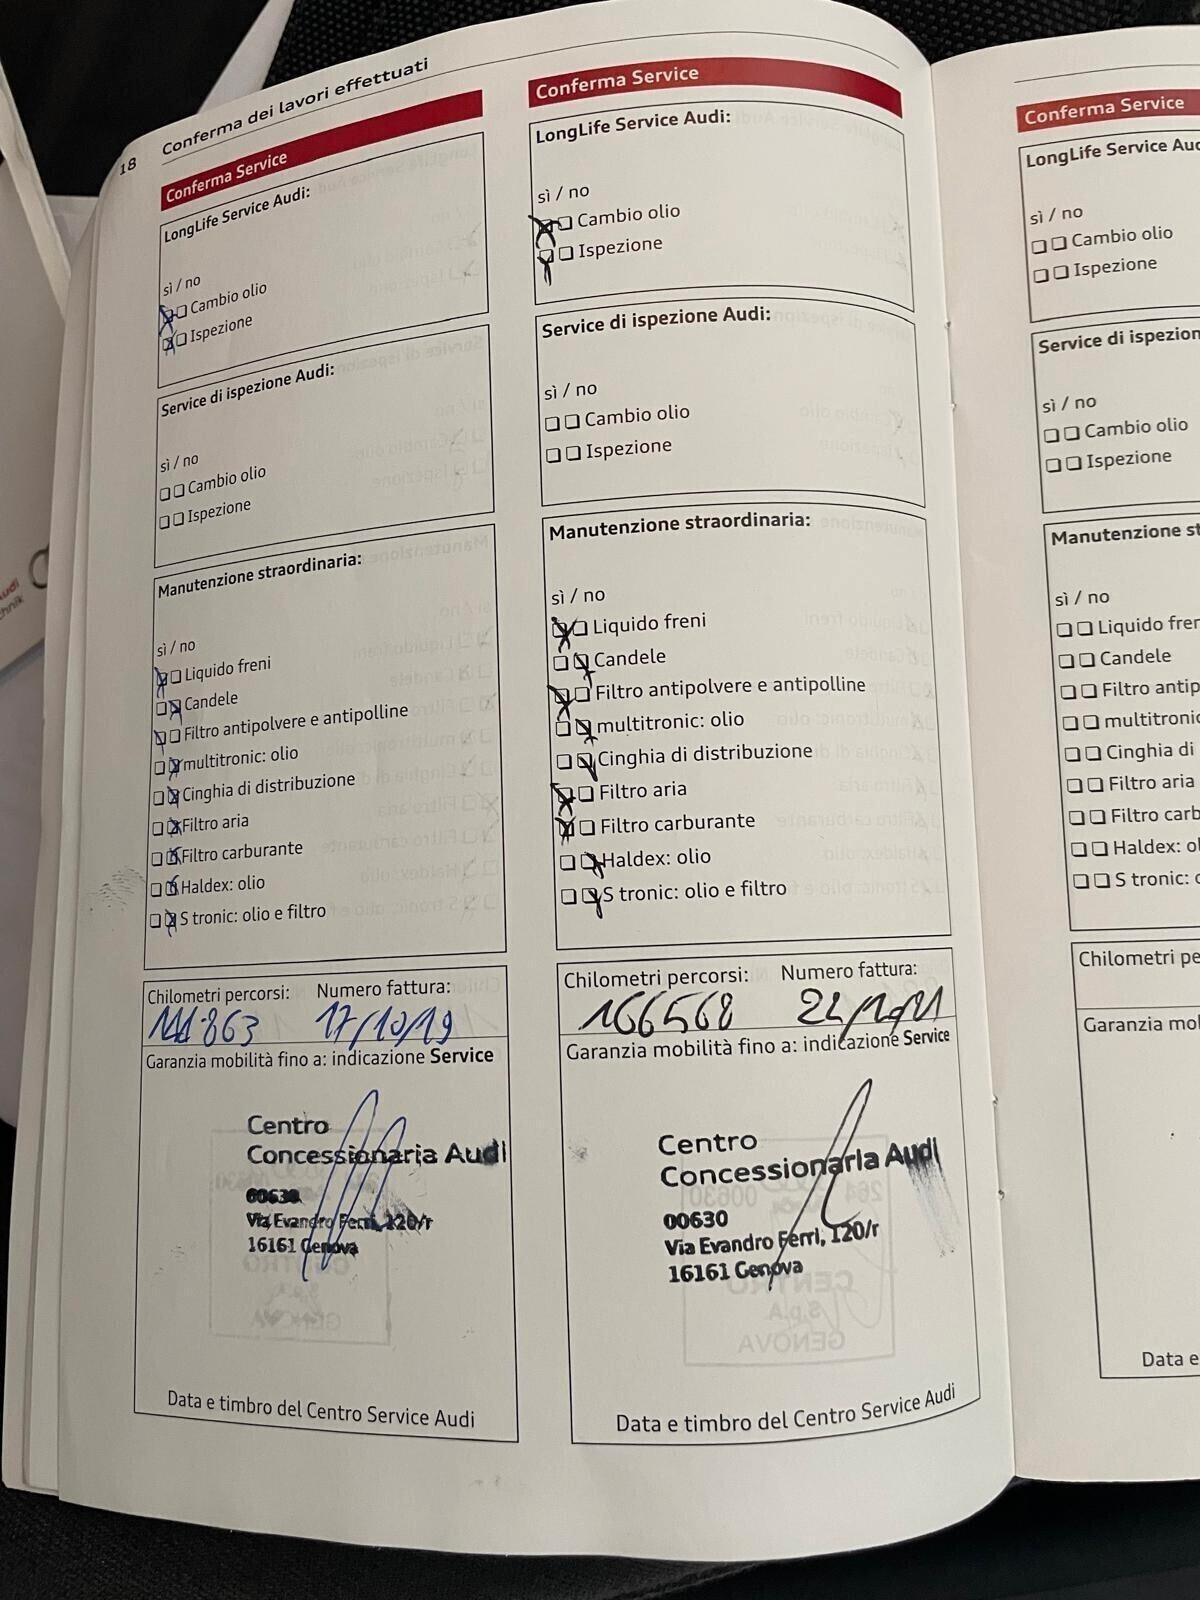 18 Conferma dei lavori effettuati
Conferma Service
LongLife Service Audi:
sì / no
Cambio olio
Ispezione
Service di ispezione Audi:
sì / no
Cambio olio
Ispezione
Manutenzione straordinaria:
sì / no
Liquido freni
Candele
Filtro antipolvere e antipolline
multitronic: olio
Cinghia di distribuzione
Filtro aria
Filtro carburante
Haldex: olio
S tronic: olio e filtro
Chilometri percorsi: Numero fattura:
111863 17/10/19
Garanzia mobilità fino a: indicazione Service
Centro
Concessionaria Audi
00630
Via Evandro Ferri, 120/r
16161 Genova
Data e timbro del Centro Service Audi
Conferma Service
LongLife Service Audi:
sì / no
Cambio olio
Ispezione
Service di ispezione Audi:
sì / no
Cambio olio
Ispezione
Manutenzione straordinaria:
sì / no
Liquido freni
Candele
Filtro antipolvere e antipolline
multitronic: olio
Cinghia di distribuzione
Filtro aria
Filtro carburante
Haldex: olio
S tronic: olio e filtro
Chilometri percorsi: Numero fattura:
166568
Garanzia mobilità fino a: indicazione Service
Centro
Concessionaria Audi
00630
Via Evandro Ferri, 120/r
16161 Genova
Data e timbro del Centro Service Audi
Conferma Service
LongLife Service Aud
sì / no
Cambio olio
Ispezione
Service di ispezion
sì / no
Cambio olio
Ispezione
Manutenzione st
sì / no
Liquido fren
Candele
Filtro antip
multitronic
Cinghia di
Filtro aria
Filtro carb
Haldex: ol
S tronic: o
Chilometri pe
Garanzia mo
Data e